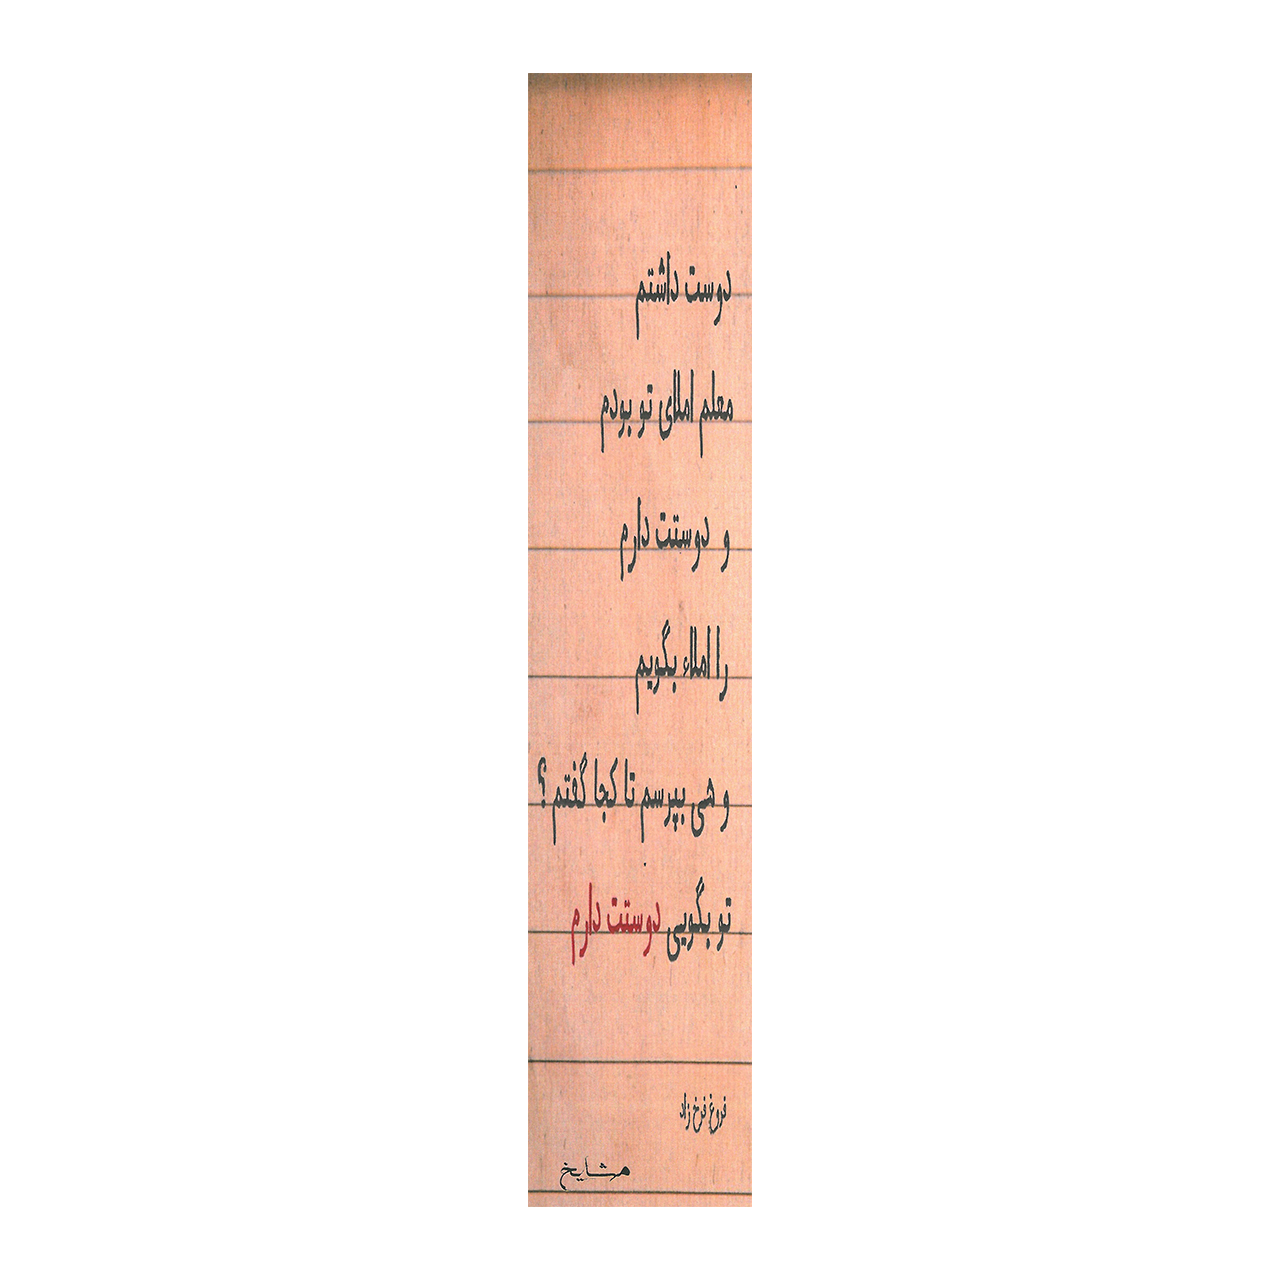 دوست داشتم
معلم املای تو بودم
و دوستت دارم
را املاء بگویم
و هی بپرسم تا کجا گفتم ؟
تو بگویی دوستت دارم
فروغ فرخ زاد
مشایخ